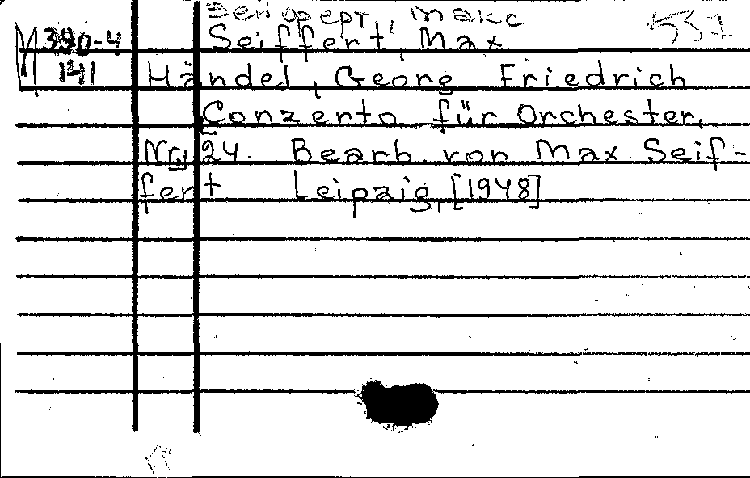 Зейферт, Макс 531
М 390-4 Seiffert, Max
141 Händel, Georg Friedrich
Conzerto für Orchester,
Nr. 24. Bearb. von Max Seif-
fert Leipzig, [1948]